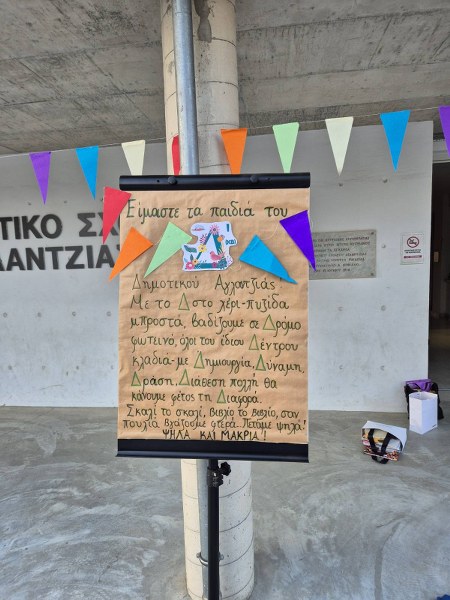 Είμαστε τα παιδιά του
Δ
Δημοτικού Αγλαντζιάς.
Με το Δ στο χέρι-πυξίδα
μπροστά, βαδίζουμε σε Δρόμο
φωτεινό, όλοι του ίδιου Δέντρου
κλαδιά-με Δημιουργία, Δύναμη,
Δράση, Διάθεση πολλή θα
κάνουμε φέτος τη Διαφορά.
Σκαλί το σκαλί, βιβλίο το βιβλίο, σαν
πουλιά βγάζουμε φτερά. Πετάμε ψηλά!
ΨΗΛΑ ΚΑΙ ΜΑΚΡΙΑ!
ΤΙΚΟ ΣΧ
ΛΑΝΤΖΙΑΣ